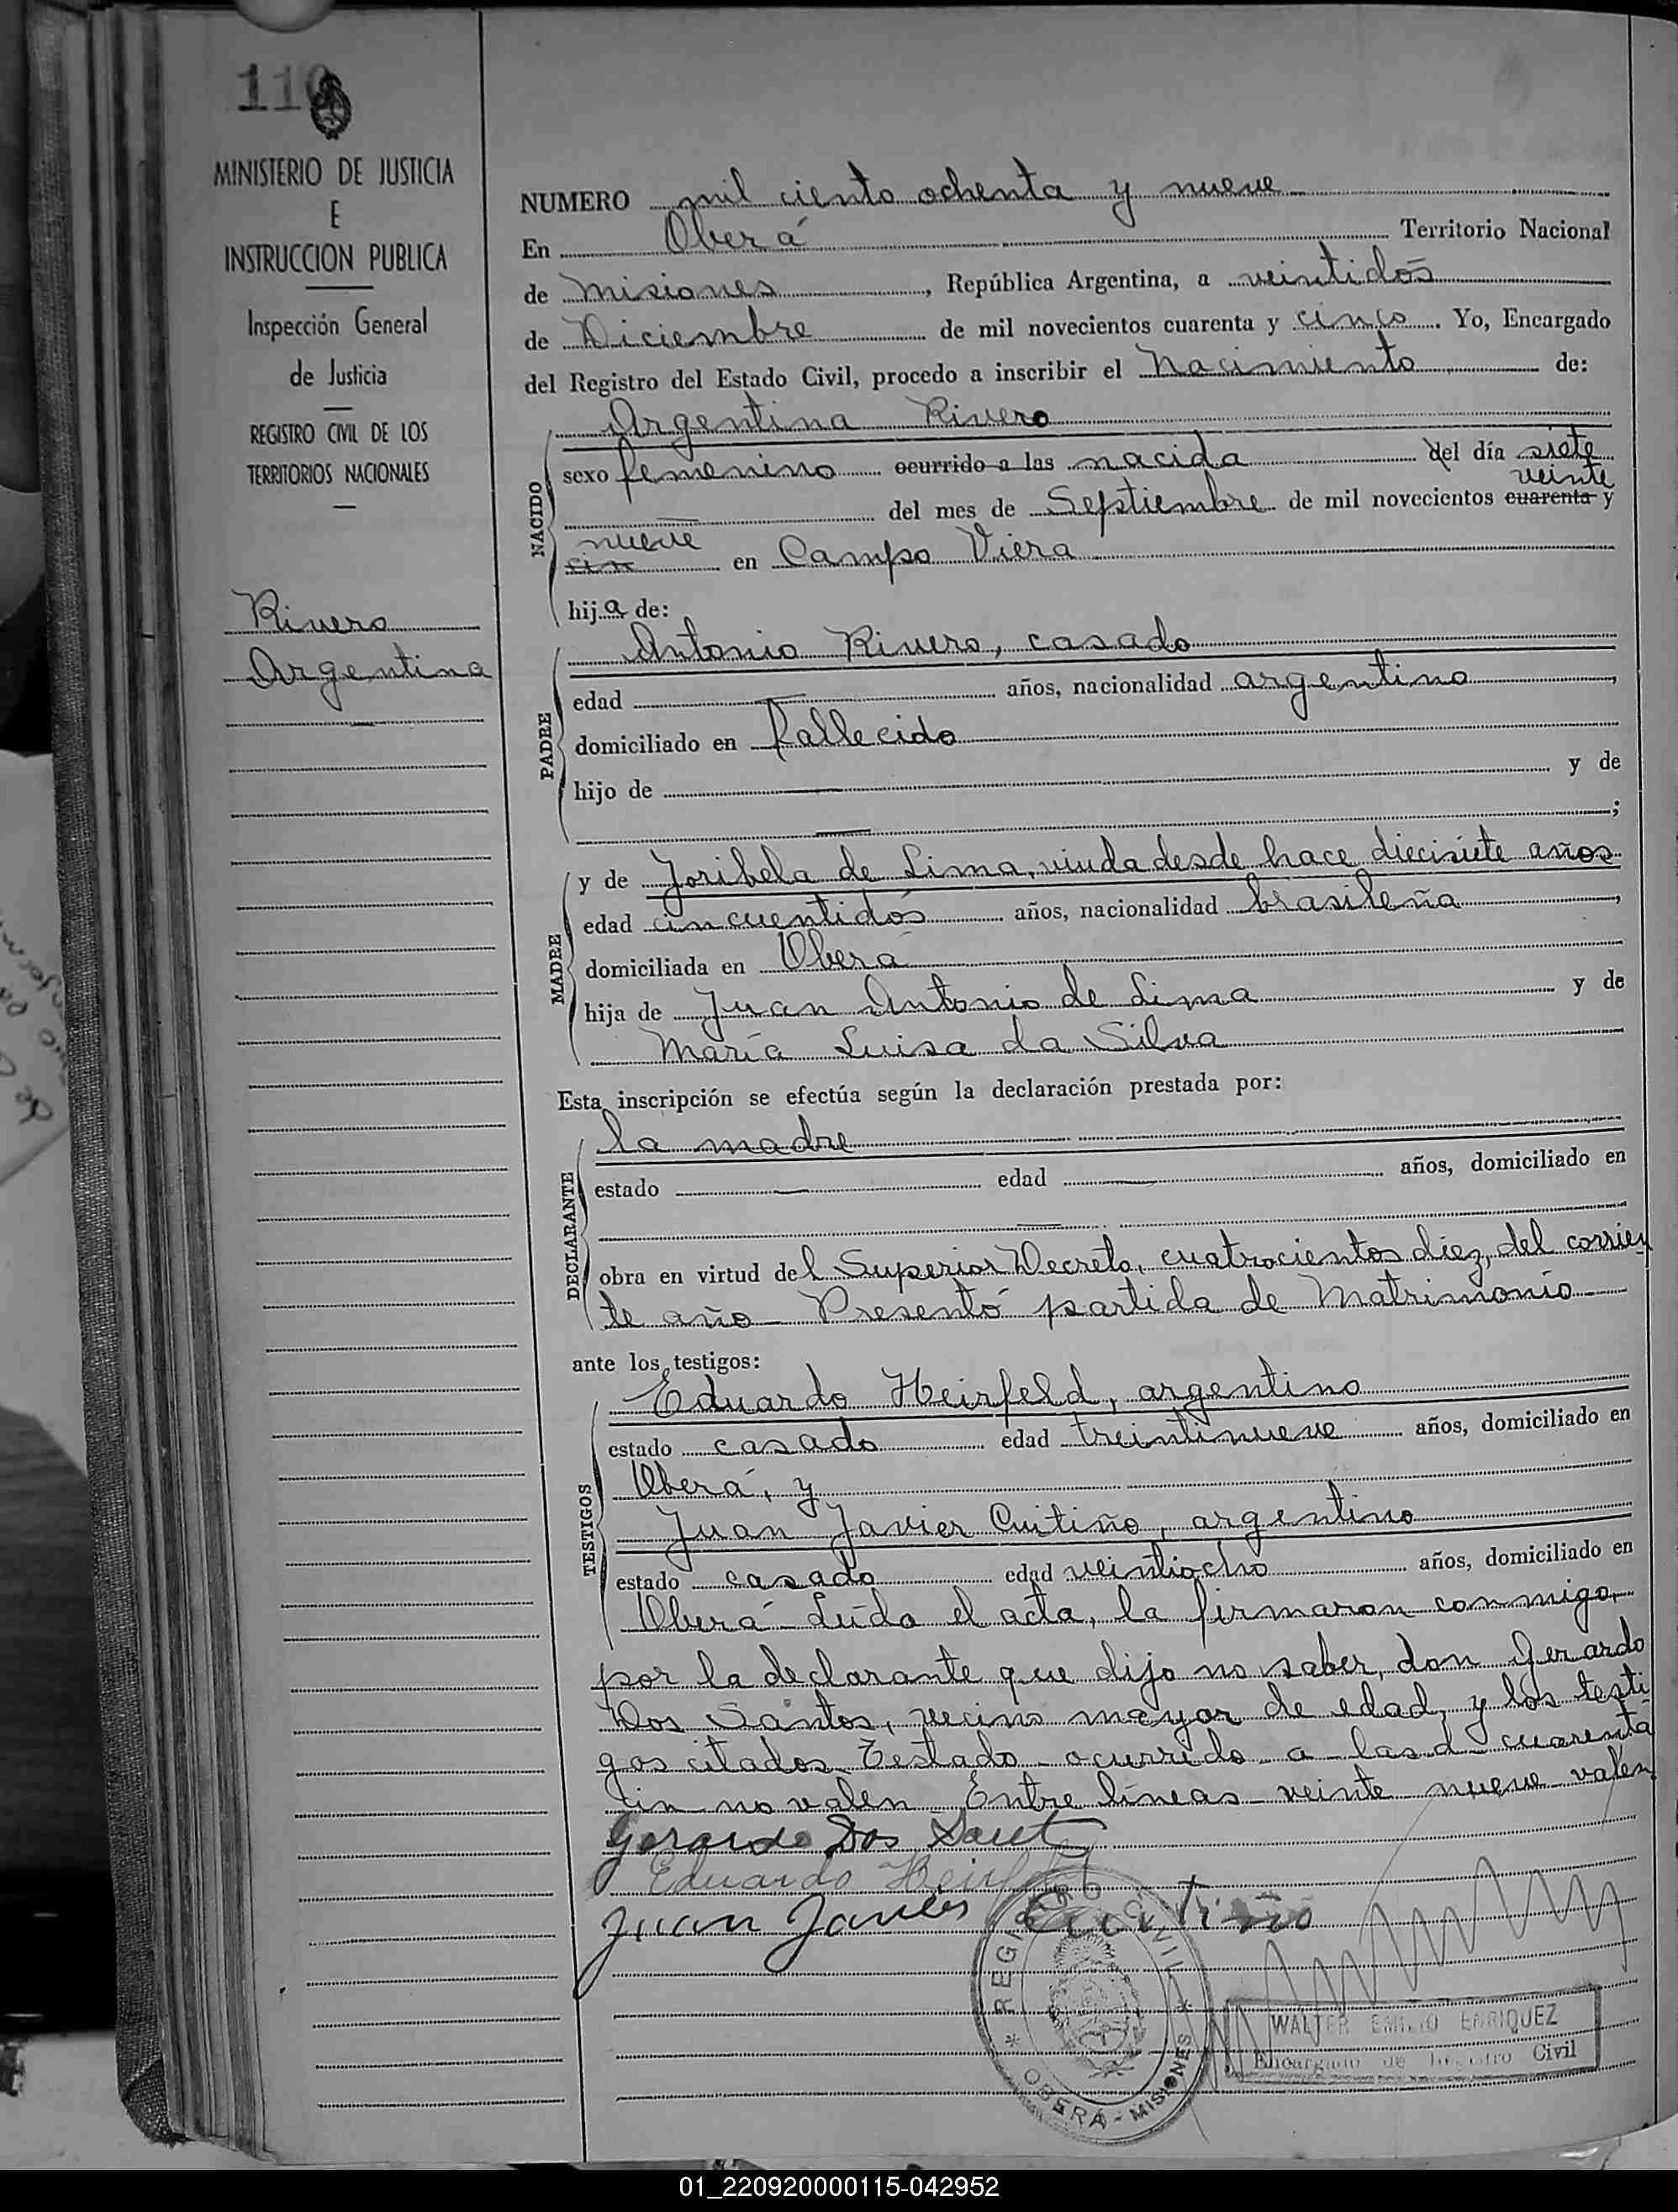 110
MINISTERIO DE JUSTICIA
E
INSTRUCCION PUBLICA
Inspección General
de Justicia
REGISTRO CIVIL DE LOS
TERRITORIOS NACIONALES
Rivero
Argentina
NUMERO mil ciento ochenta y nueve
En Oberá Territorio Nacional
de Misiones, República Argentina, a veintidós
de Diciembre de mil novecientos cuarenta y cinco. Yo, Encargado
del Registro del Estado Civil, procedo a inscribir el Nacimiento de:
Argentina Rivero
NACIDO
sexo femenino ocurrido a las nacida del día siete
veinte
del mes de Septiembre de mil novecientos cuarenta y
nueve
cin en Campo Viera
hija de:
Antonio Rivero, casado
PADRE
edad — años, nacionalidad argentino,
domiciliado en fallecido
hijo de — y de
— ;
MADRE
y de Joribela de Lima, viuda desde hace diecisiete años
edad cincuentidós años, nacionalidad brasileña,
domiciliada en Oberá
hija de Juan Antonio de Lima y de
María Luisa da Silva
Esta inscripción se efectúa según la declaración prestada por:
DECLARANTE
la madre
estado — edad — años, domiciliado en
—
obra en virtud del Superior Decreto, cuatrocientos diez, del corrien
te año - Presentó partida de Matrimonio -
ante los testigos:
TESTIGOS
Eduardo Heirfeld, argentino
estado casado edad treintinueve años, domiciliado en
Oberá, y
Juan Javier Cuitiño, argentino
estado casado edad veintiocho años, domiciliado en
Oberá - Leída el acta, la firmaron conmigo,
por la declarante que dijo no saber, don Gerardo
Dos Santos, vecino mayor de edad, y los testi
gos citados. Testado - ocurrido a las d - cuarenta
cin - no valen - Entre líneas - veinte nueve - valen
Gerardo Dos Sant
Eduardo Heirfeld
Juan Javier Cuitiño
REGISTRO CIVIL
* OBERÁ - MISIONES *
WALTER EMILIO ENRIQUEZ
Encargado de Registro Civil
01_220920000115-042952